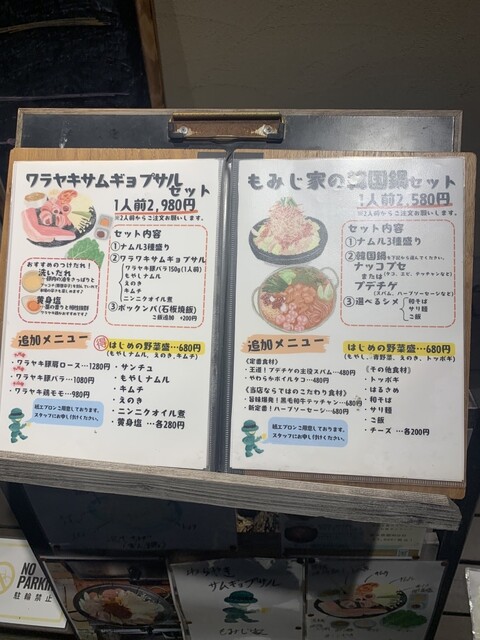 ワラヤキサムギョプサル
セット
1人前2,980円
※2人前からご注文お願いします。
おすすめのつけだれ！
洗いだれ
黄身塩
セット内容
①ナムル3種盛り
②ワラワキサムギョプサル
ワラヤキ豚バラ150g(1人前)
もやしナムル
えのき
キムチ
ニンニクオイル煮
③ポックンパ(石板焼飯)
ご飯追加 +200円
追加メニュー
はじめの野菜盛…680円
(もやしナムル、えのき、キムチ)
・ワラヤキ豚肩ロース…1280円
・ワラヤキ豚バラ…1080円
・ワラヤキ鶏モモ…980円
・サンチュ
・もやしナムル
・キムチ
・えのき
・ニンニクオイル煮
・黄身塩 …各280円
紙エプロンご用意しております。
スタッフにお申し付けください。
もみじ家の韓国鍋セット
1人前2,580円
※2人前からご注文お願いします。
セット内容
①ナムル3種盛り
②韓国鍋
ナッコプセ
または
プデチゲ
(スパム、ハーブソーセージなど)
③選べるシメ
和そば
サリ麺
ご飯
追加メニュー
はじめの野菜盛…680円
(もやし、青野菜、えのき、トッポギ)
《定番食材》
・王道！プデチゲの主役スパム…480円
・やわらかボイルタコ…480円
《当店ならではのこだわり食材》
・旨味爆発！黒毛和牛テッチャン…680円
・新定番！ハーブソーセージ…680円
《その他食材》
・トッポギ
・はるさめ
・和そば
・サリ麺
・ご飯
・チーズ …各200円
紙エプロンご用意しております。
スタッフにお申し付けください。
NO
PARKIN
駐輪禁止
サムギョプサル
もみじ家